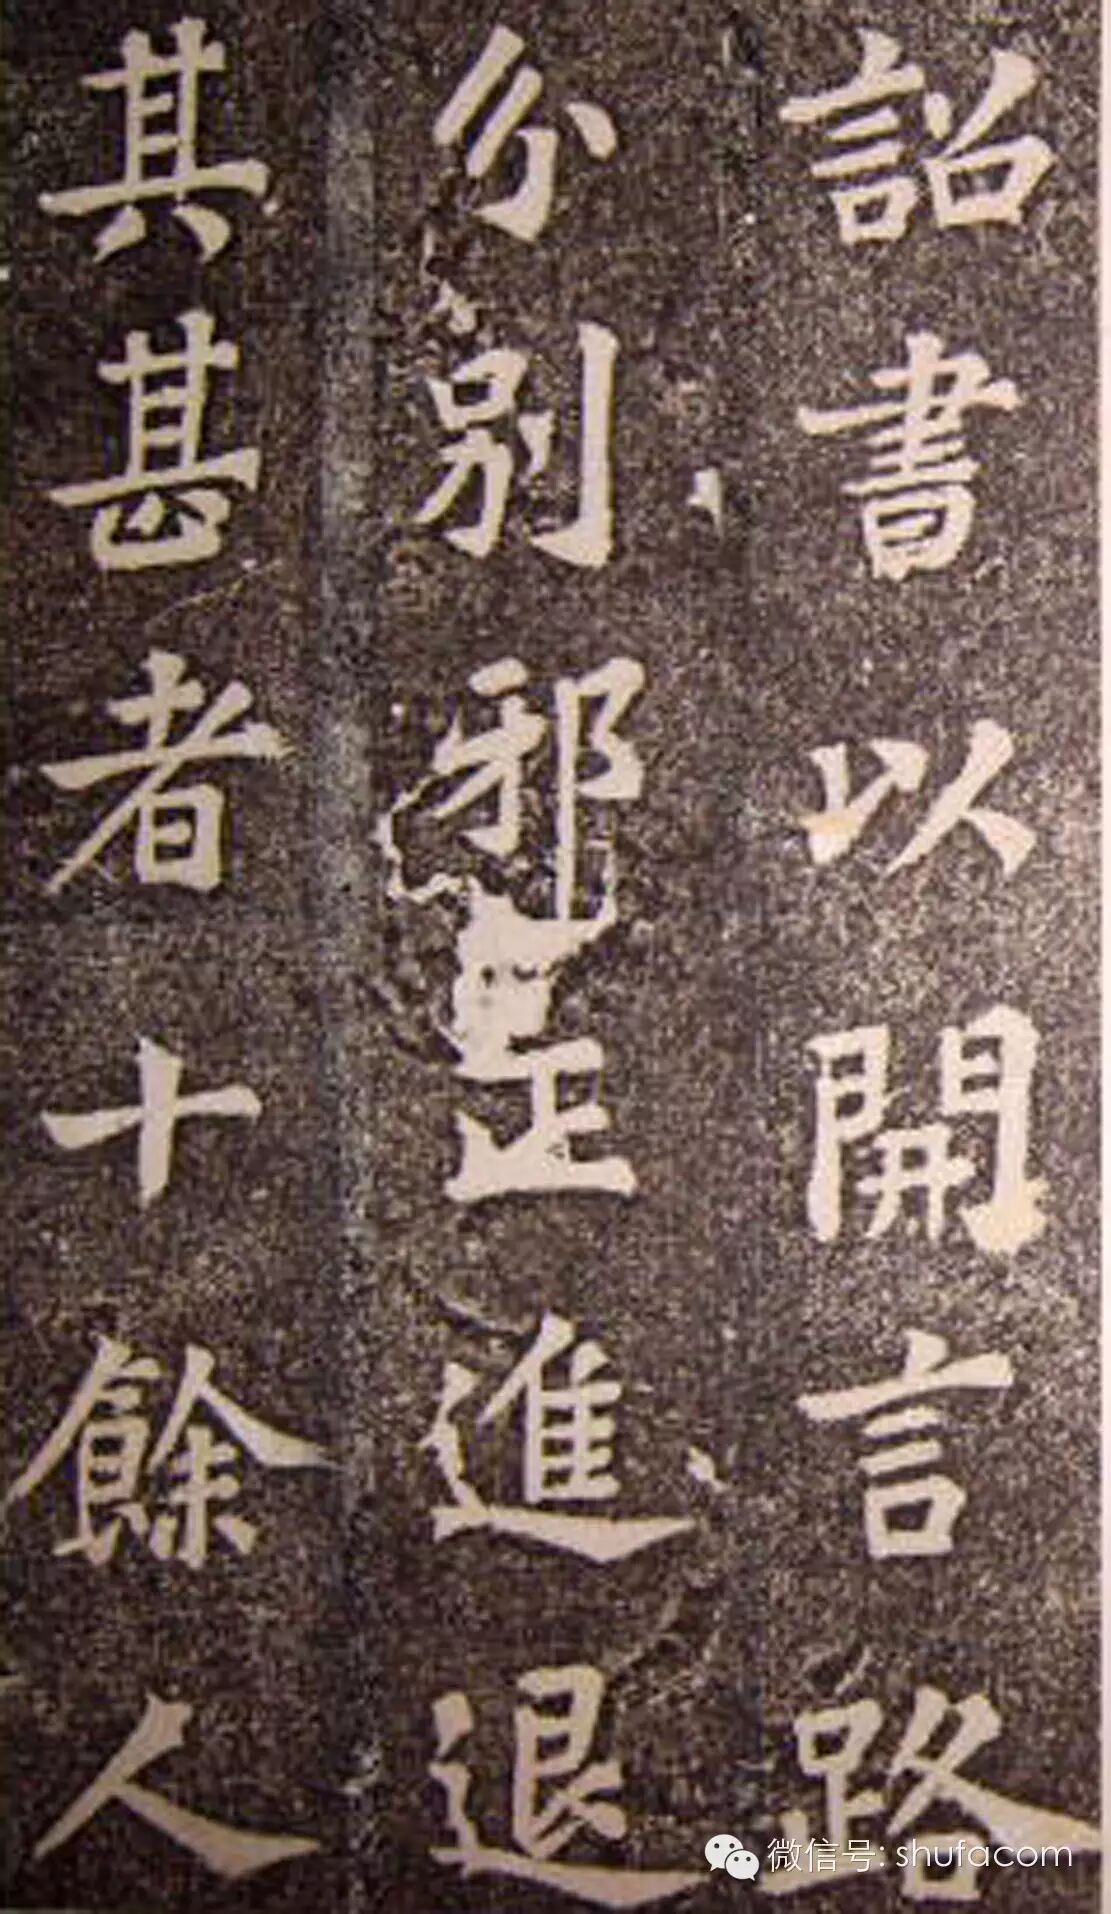 詔書以開言路
分別邪正進退
其甚者十餘人
微信号: shufacom